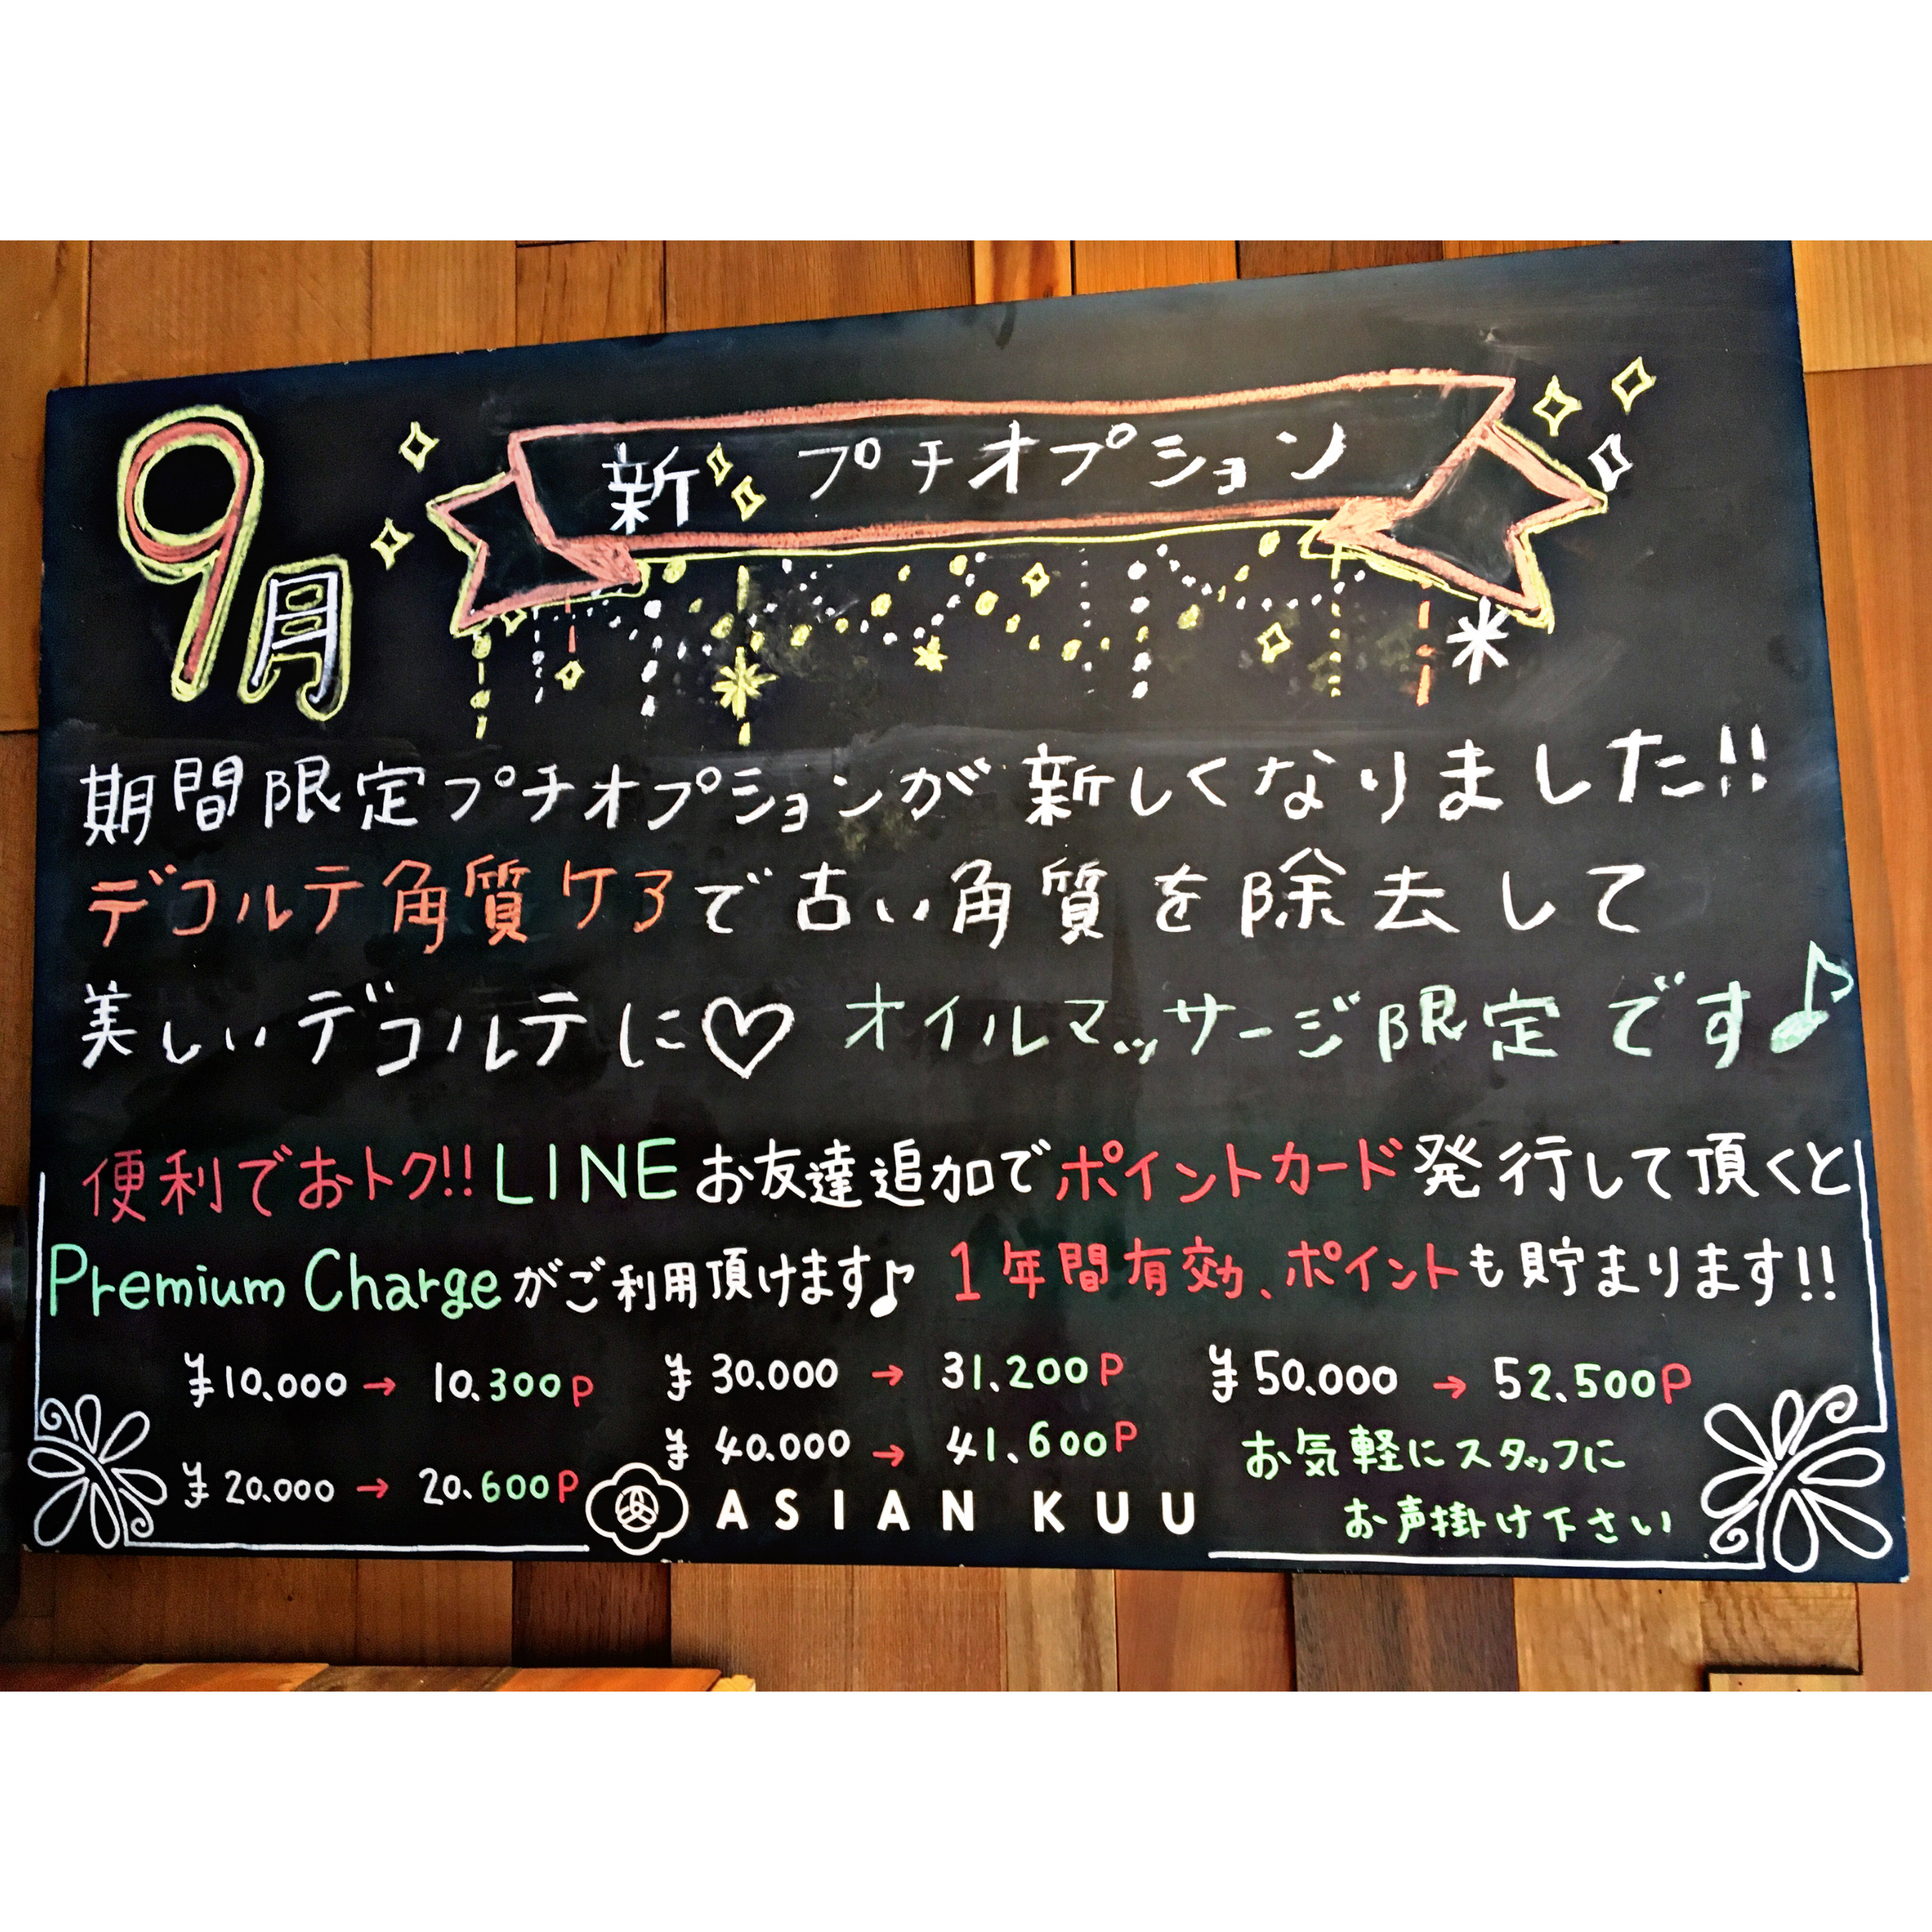 9月
新 プチオプション
期間限定プチオプションが新しくなりました!!
デコルテ角質ケアで古い角質を除去して
美しいデコルテに♡ オイルマッサージ限定です♪
便利でおトク!! LINEお友達追加でポイントカード発行して頂くと
Premium Chargeがご利用頂けます♪ 1年間有効、ポイントも貯まります!!
¥10.000→10.300P ¥30.000→31.200P ¥50.000→52.500P
¥20.000→20.600P ¥40.000→41.600P
お気軽にスタッフに
お声掛け下さい
ASIAN KUU